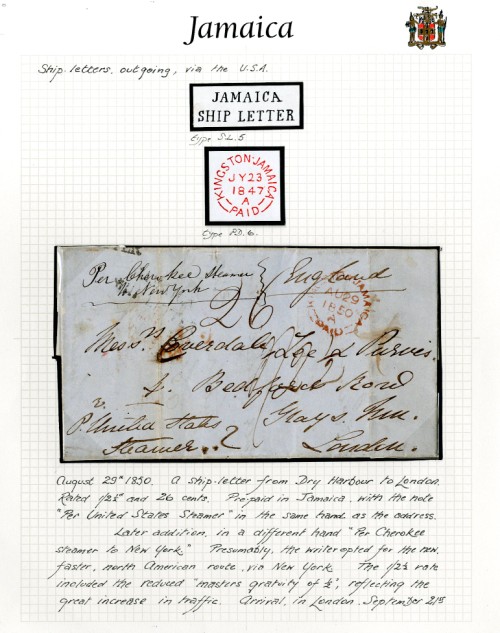 Jamaica
Ship letters, outgoing, via the U.S.A.
JAMAICA
SHIP LETTER
type S.L.5
KINGSTON·JAMAICA
JY23
1847
A
PAID
type P.D.6.
Per Cherokee Steamer
New York
England
26
JAMAICA
AU29
1850
A
PAID
Messrs Loverdale Lee & Purvis.
4. Bedford Row
P. United States
Grays Inn.
Steamer..2
London.
August 29th 1850. A ship-letter from Dry Harbour to London.
Rated 1/2½ and 26 cents. Pre-paid in Jamaica, with the note
"Per United States Steamer" in the same hand as the address.
Later addition, in a different hand "Per Cherokee
steamer to New York" Presumably, the writer opted for the new,
faster, north American route, via New York. The 1/2½ rate
included the reduced "masters gratuity of ½', reflecting the
great increase in traffic. Arrival, in London, September 21st